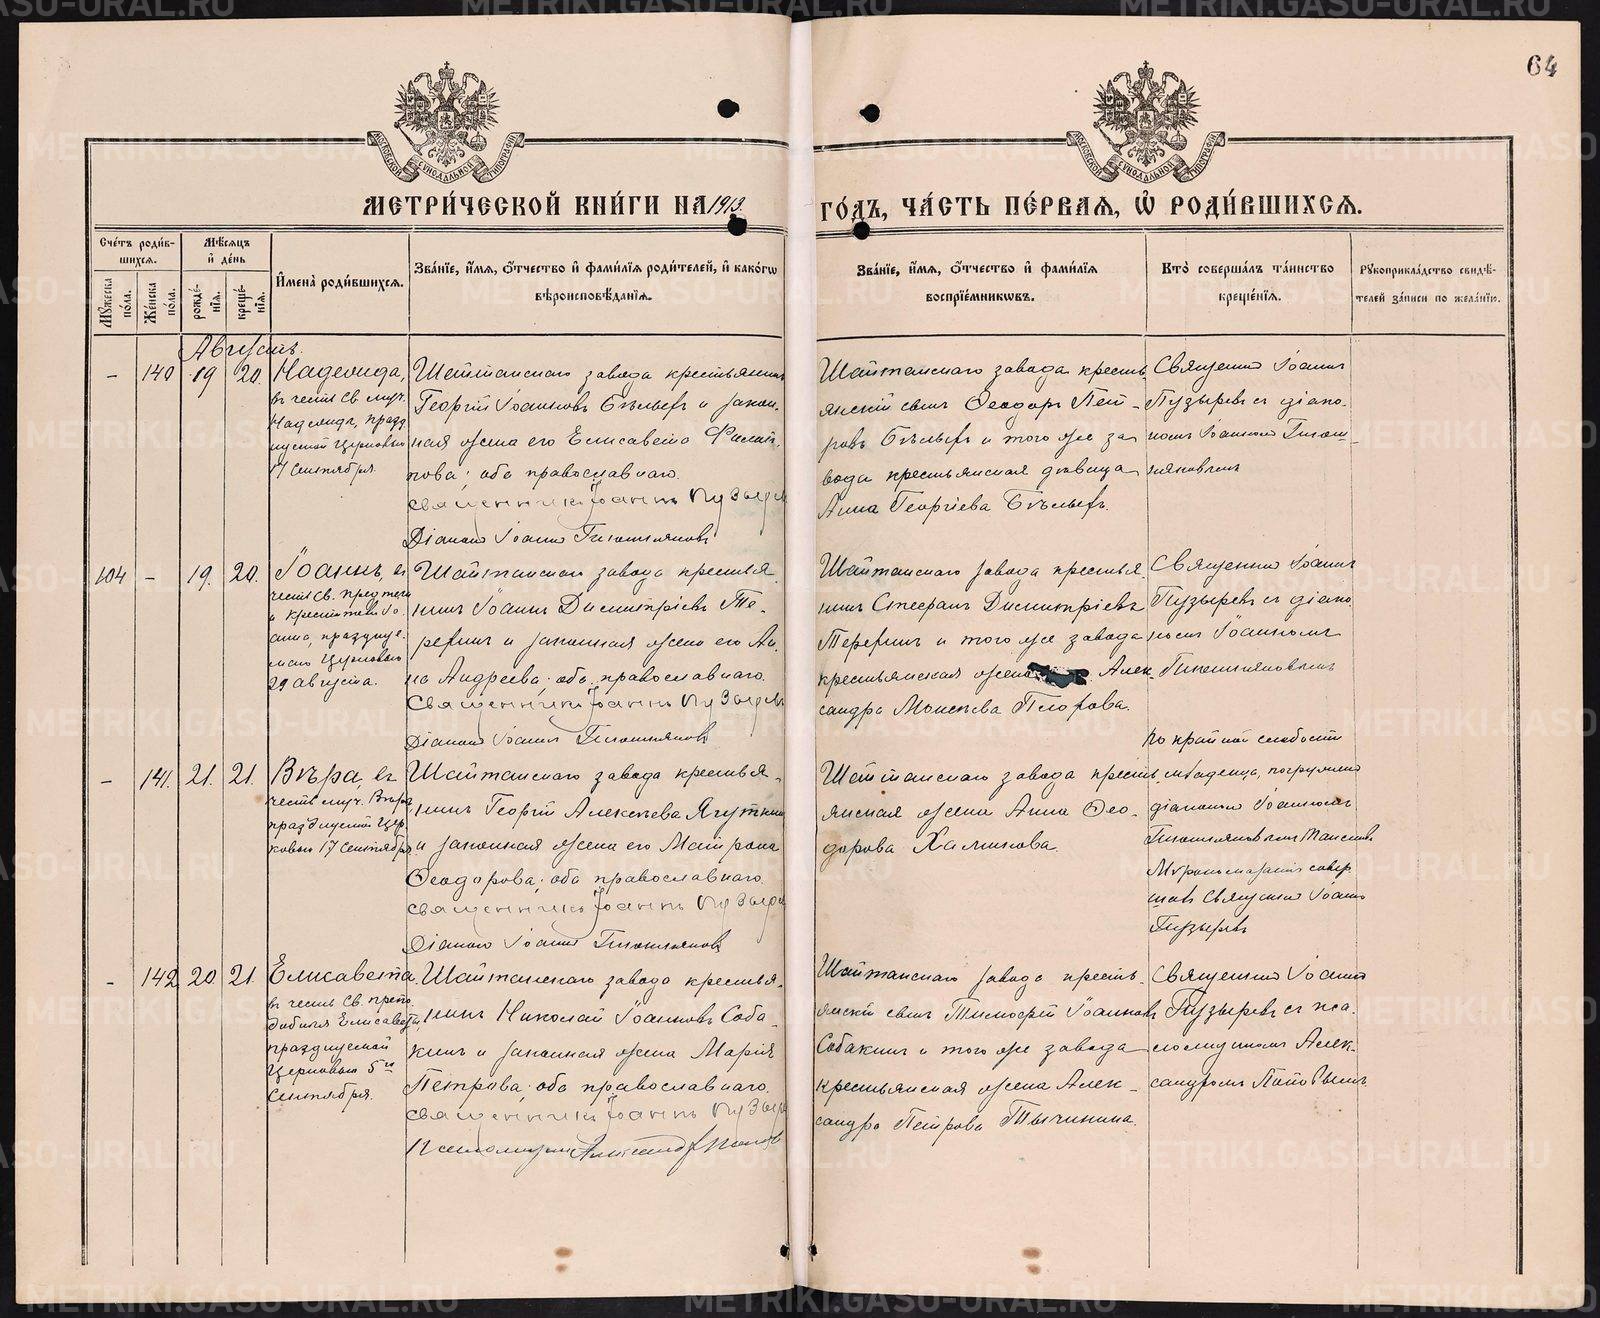 64
МЕТРИ́ЧЕСКОЙ КНИ́ГИ НА 1913 ГО́ДЪ, ЧА́СТЬ ПЕ́РВАЯ, Ѡ РОДИ́ВШИХСЯ.
Сче́тъ роди́в-
шихся.
Мѣ́сяцъ
и де́нь
Му́жеска по́ла.
Же́нска по́ла.
рожде́-
нія.
креще́-
нія.
Имена̀ роди́вшихся.
Зва́ніе, и́мя, о́тчество и фами́лія роди́телей, и како́гѡ
вѣроисповѣ́данія.
Зва́ніе, и́мя, о́тчество и фами́лія
воспріе́мникѡвъ.
Кто̀ соверша́лъ та́инство
креще́нія.
Рукоприкла́дство свидѣ́-
телей за́писи по жела́нію.
Августъ.
– 140 19 20.
Надежда,
въ честь Св. муч.
Надежды, празд
нуемой Церковью
17 Сентября.
Шайтанскаго завода крестьянинъ
Георгій Іоанновъ Бѣлыхъ и закон-
ная жена его Елисавета Филип-
пова; оба православнаго.
Священникъ Іоаннъ Пузырев
Діаконъ Іоаннъ Тихомняновъ
Шайтанскаго завода кресть
янскій сынъ Ѳеодоръ Пет-
ровъ Бѣлыхъ и того же за-
вода крестьянская дѣвица
Анна Георгіева Бѣлыхъ.
Священникъ Іоаннъ
Пузыревъ съ діако-
номъ Іоанномъ
104 – 19. 20.
Іоаннъ, въ
честь Св. предтечи
и крестителя Іо-
анна, празднуе-
маго Церковью
29 августа.
Шайтанскаго завода крестья
нинъ Іоаннъ Димитріевъ Те-
рехинъ и законная жена его Ан-
на Андреева; оба православнаго.
Священникъ Іоаннъ Пузырев
Діаконъ Іоаннъ
Шайтанскаго завода крестья
нинъ Стефанъ Димитріевъ
Терехинъ и того же завода
крестьянская жена Алек-
сандра Моисеева
Священникъ Іоаннъ
Пузыревъ съ діако
номъ Іоанномъ
– 141. 21. 21.
Вѣра, въ
честь муч. Вѣры
празднуемой Цер-
ковью 17 Сентября
Шайтанскаго завода крестья-
нинъ Георгій Алексѣева Ягуткинъ
и законная жена его Матрона
Ѳеодорова; оба православнаго.
Священникъ Іоаннъ Пузырев
Діаконъ Іоаннъ
Шайтанскаго завода кресть
янская жена Анна Ѳео-
дорова Халикова.
По крайней слабости
младенца, погружено
діакономъ Іоанномъ
Таинство
Мѵропомазанія совер
шалъ Священникъ Іоаннъ
Пузыревъ
– 142 20. 21.
Елисавета.
въ честь Св. препо-
добныя Елисаветы,
празднуемой
Церковью 5го
Сентября.
Шайтанскаго завода крестья-
нинъ Николай Іоанновъ Соба-
кинъ и законная жена Марія
Петрова; оба православнаго.
Священникъ Іоаннъ Пузырев
Псаломщикъ Александръ Поповъ
Шайтанскаго завода кресть-
янскій сынъ Тимоѳей Іоанновъ
Собакинъ и того же завода
крестьянская жена Алек-
сандра Петрова Тычинина.
Священникъ Іоаннъ
Пузыревъ съ пса-
ломщикомъ Алек-
сандромъ Поповымъ.
METRIKI.GASO-URAL.RU